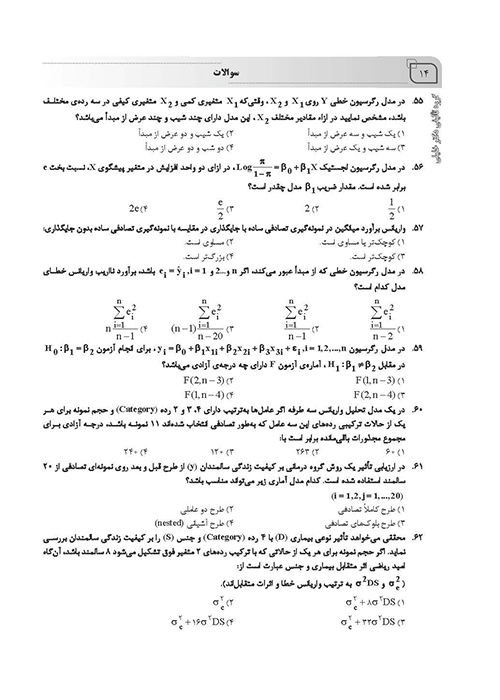 ۱۴
سوالات
گروه تألیفی دکتر خلیلی
۵۵. در مدل رگرسیون خطی Y روی X1 و X2 ، وقتی‌که X1 متغیری کمی و X2 متغیری کیفی در سه رده‌ی مختلف
باشد، مشخص نمایید در ازاء مقادیر مختلف X2 ، این مدل دارای چند شیب و چند عرض از مبدأ می‌باشد؟
۱) یک شیب و سه عرض از مبدأ ۲) یک شیب و دو عرض از مبدأ
۳) سه شیب و یک عرض از مبدأ ۴) دو شب و دو عرض از مبدأ
۵۶. در مدل رگرسیون لجستیک Log π/1−π = β0 + β1X ، در ازای دو واحد افزایش در متغیر پیشگوی X، نسبت بخت e
برابر شده است. مقدار ضریب β1 مدل چقدر است؟
۱) 1/2 ۲) 2 ۳) e/2 ۴) 2e
۵۷. واریانس برآورد میانگین در نمونه‌گیری تصادفی ساده با جایگذاری در مقایسه با نمونه‌گیری تصادفی ساده بدون جایگذاری:
۱) کوچک‌تر یا مساوی است. ۲) مساوی است.
۳) کوچک‌تر است. ۴) بزرگ‌تر است.
۵۸. در مدل رگرسیون خطی که از مبدأ عبور می‌کند، اگر n و...2 و 1 = i ، ei = ŷi باشد، برآورد نااریب واریانس خطای
مدل کدام است؟
۱) n∑i=1 ei² / n−2 ۲) n∑i=1 ei² / n−1 ۳) (n−1) n∑i=1 ei² / n−20 ۴) n n∑i=1 ei² / n−1
۵۹. در مدل رگرسیون yi = β0 + β1x1i + β2x2i + β3x3i + εi , i = 1,2,...,n ، برای انجام آزمون H0 : β1 = β2
در مقابل H1 : β1 ≠ β2 ، آماره‌ی آزمون F دارای چه درجه‌ی آزادی می‌باشد؟
۱) F(1,n−3) ۲) F(2,n−3)
۳) F(2,n−4) ۴) F(1,n−4)
۶۰. در یک مدل تحلیل واریانس سه طرفه اگر عامل‌ها به‌ترتیب دارای ۴، ۳ و ۲ رده (Category) و حجم نمونه برای هر
یک از حالات ترکیبی رده‌های این سه عامل که به‌طور تصادفی انتخاب شده‌اند ۱۱ نمونه باشد، درجه آزادی برای
مجموع مجذورات باقی‌مانده برابر است با:
۱) ۶۰ ۲) ۲۶۳ ۳) ۱۲۰ ۴) ۲۴۰
۶۱. در ارزیابی تأثیر یک روش گروه درمانی بر کیفیت زندگی سالمندان (y) از طرح قبل و بعد روی نمونه‌ای تصادفی از ۲۰
سالمند استفاده شده است. کدام مدل آماری زیر می‌تواند مناسب باشد؟
(i = 1,2, j = 1,...,20)
۱) طرح کاملاً تصادفی ۲) طرح دو عاملی
۳) طرح بلوک‌های تصادفی ۴) طرح آشیانی (nested)
۶۲. محققی می‌خواهد تأثیر نوعی بیماری (D) با ۴ رده (Category) و جنس (S) را بر کیفیت زندگی سالمندان بررسی
نماید. اگر حجم نمونه برای هر یک از حالاتی که با ترکیب رده‌های ۲ متغیر فوق تشکیل می‌شود ۸ سالمند باشد، آن‌گاه
امید ریاضی اثر متقابل بیماری و جنس عبارت است از:
(σe² و σ²DS به ترتیب واریانس خطا و اثرات متقابل‌اند).
۱) σe² + ۸σ²DS ۲) σe²
۳) σe² + ۳۲σ²DS ۴) σe² + ۱۶σ²DS